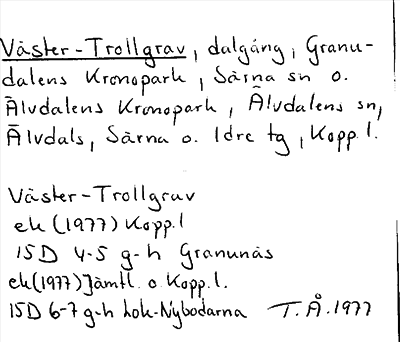 Väster-Trollgrav, dalgång, Granu-
dalens Kronopark, Särna sn o.
Älvdalens Kronopark, Älvdalens sn,
Älvdals, Särna o. Idre tg, Kopp.l.
Väster-Trollgrav
ek (1977) Kopp.l
15D 4-5 g-h Granunäs
ek (1977) Jämtl. o. Kopp.l.
15D 6-7 g-h Lok-Nybodarna T.Å. 1977